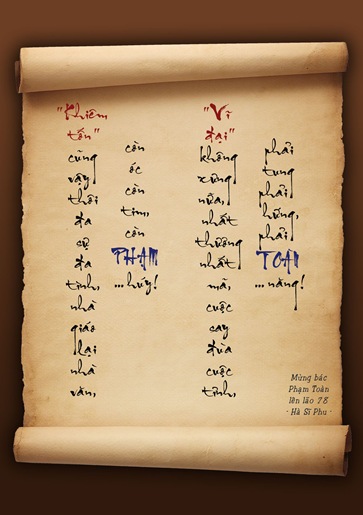 "Khiêm
tốn"
cũng
vậy
thôi
đa
sự
đa
tình,
nhà
giáo
lại
nhà
văn,
còn
óc
còn
tim,
còn
PHẠM
...húy!
"Vĩ
đại"
không
xứng
nữa,
nhất
thường
nhất
mà,
cuộc
say
đùa
cuộc
tỉnh,
phải
tung
phải
hứng,
phải
TOÀN
...năng!
Mừng bác
Phạm Toàn
lên lão 78
- Hà Sĩ Phu -